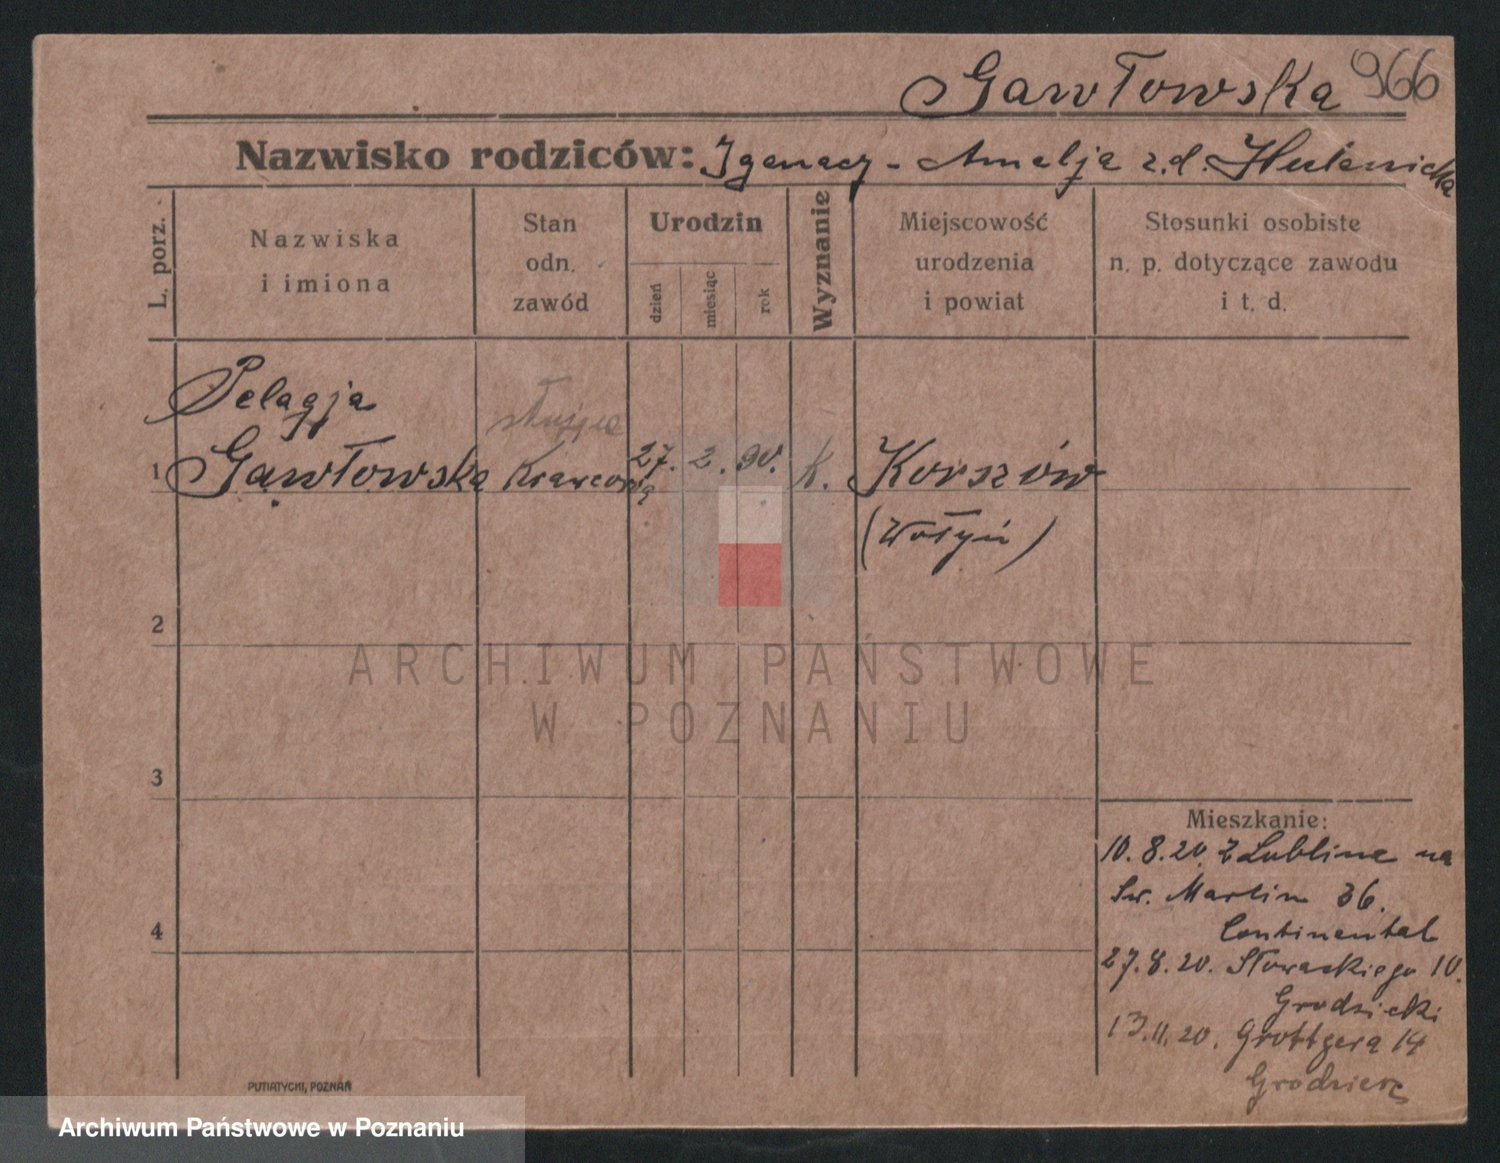 Gawłowska 966
Nazwisko rodziców: Igenacy - Amelja z.d. Hulanicka
L. porz.
Nazwiska
i imiona
Stan
odn.
zawód
Urodzin
dzień
miesiąc
rok
Wyznanie
Miejscowość
urodzenia
i powiat
Stosunki osobiste
n. p. dotyczące zawodu
i t. d.
Pelagja
służąca
1 Gawłowska Krawcową 27. 2. 90. k. Korszów
(Wołyń)
2
ARCHIWUM PAŃSTWOWE
W POZNANIU
3
Mieszkanie:
10.8.20 z Lublina na
Św. Marcin 36.
Continental
4
27.8.20. Słowackiego 10.
Grodzicki
13.11.20. Grottgera 14
PUTIATYCKI, POZNAŃ
Archiwum Państwowe w Poznaniu